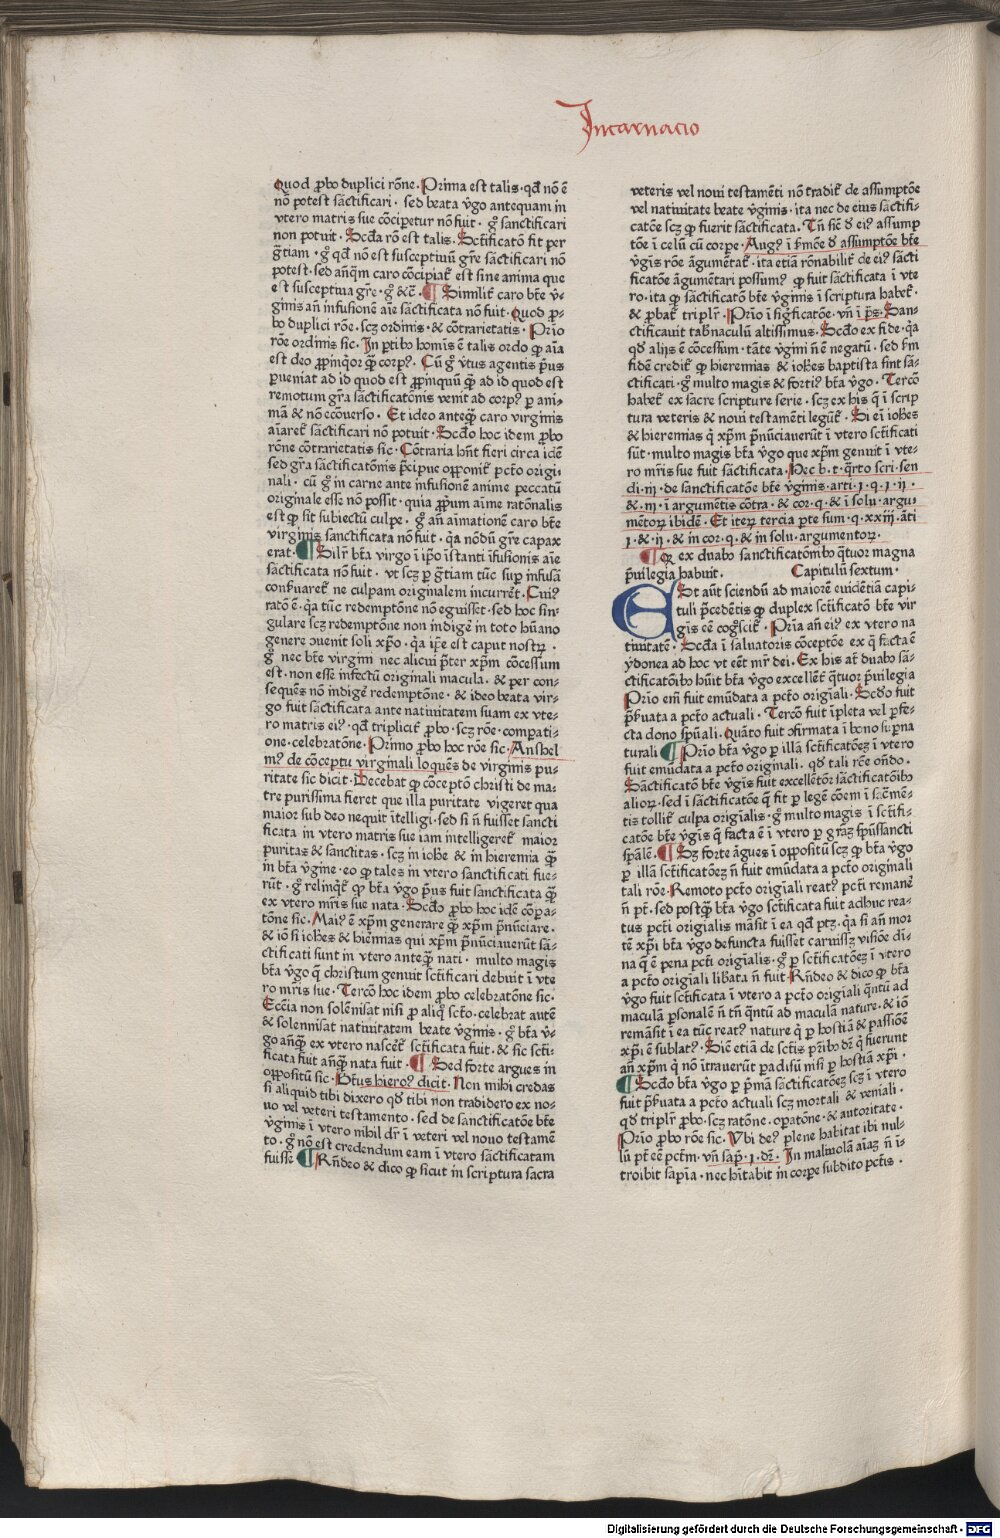 Incarnacio
Quod ꝓbo duplici rōne. Prima est talis. qđ nō ē
nō potest sāctificari. sed beata v̄go antequam in
vtero matris sue cōciperetur nō fuit. g̊ sanctificari
non potuit. Scđa rō est talis. Sctificatō fit per
gr̄tiam. g̊ qđ nō est susceptiuū gr̄e sāctificari nō
potest. sed an̄qm̄ caro cōcipiat᷑ est sine anima que
est susceptiua gr̄e. g̊ &c̄. ¶ Similit᷑ caro btē v̄-
ginis an̄ infusionē aīe sāctificata nō fuit. Quod ꝓ-
bo duplici rōe. scꝫ ordinis. & cōtrarietatis. Prīo
rōe ordinis sic. In ꝑtibꝰ homīs ē talis ordo ꝙ aīa
est deo ꝓpinq̊or q̄ꝫ corpꝰ. Cū g̊ v̄tus agentis p̄us
ꝑueniat ad id quod est ꝓpinquū q̄ꝫ ad id quod est
remotum gr̄a sāctificatōnis venit ad corpꝰ ꝑ ani-
mā & nō ecōuerso. Et ideo anteq̄ꝫ caro virginis
aīaret᷑ sāctificari nō potuit. Scđo hoc idem ꝓbo
rōne cōtrarietatis sic. Cōtraria hn̄t fieri circa idē
sed gr̄a sāctificatōnis p̄cipue opponit᷑ pctō origi-
nali. cū g̊ in carne ante infusionē anime peccatū
originale esse nō possit. quia ꝓpum aīme ratōnalis
est ꝙ sit subiectū culpe. g̊ an̄ aīmationē caro btē
virginis sanctificata nō fuit. q̄a nōdū gr̄e capax
erat. ¶ Silr̄ btā virgo ī ip̄o īstanti īfusionis aīe
sāctificata nō fuit. vt scꝫ ꝑ gr̄tiam tūc suꝑ infusā
conẜuaret᷑ ne culpam originalem incurrēt. Cuiꝰ
ratō ē. q̄a tūc redemptōne nō eguisset. sed hoc sin-
gulare scꝫ redemptōne non indigē in toto hūano
genere ɔuenit soli xp̄o. q̄a ip̄e est caput nostꝝ.
g̊ nec btē virgini nec alicui p̄ter xp̄m cōcessum
est. non esse infectū originali macula. & per con-
sequēs nō indigē redemptōne. & ideo beata vir-
go fuit sāctificata ante natiuitatem suam ex vte-
ro matris eiꝰ. qđ triplicit᷑ ꝓbo. scꝫ rōe. compati-
one. celebratōne. Primo ꝓbo hoc rōe sic. Anshel
mꝰ de cōceptu virginali loquēs de virginis pu-
ritate sic dicit. Decebat ꝙ cōceptō christi de ma-
tre purissima fieret que illa puritate vigeret qua
maior sub deo nequit ītelligi. sed si n̄ fuisset sancti
ficata in vtero matris sue iam intelligeret᷑ maior
puritas & sanctitas. scꝫ in iohe & in hieremia q̄ꝫ
in btā v̄gine. eo ꝙ tales in vtero sanctificati fue-
rūt. g̊ relinqt᷑ ꝙ btā v̄go p̄us fuit sanctificata q̄ꝫ
ex vtero mr̄is sue nata. Scđo ꝓbo hoc idē cōpa-
tōne sic. Maiꝰ ē xp̄m generare q̄ꝫ xp̄m p̄nūciare.
& iō si iohēs & hieremias qui xp̄m p̄nūciauerūt sā-
ctificati sunt in vtero anteq̄ꝫ nati. multo magis
btā v̄go q̄ christum genuit sctificari debuit ī vte
ro mr̄is sue. Tercō hoc idem ꝓbo celebratōne sic.
Eccīa non solēnisat nisi ꝓ aliq̊ sctō. celebrat autē
& solennisat natiuitatem beate v̄ginis. g̊ btā v̄-
go an̄q̄ꝫ ex vtero nascēt᷑ sctificata fuit. & sic scti-
ficata fuit an̄q̄ꝫ nata fuit. ¶ Sed forte argues in
oppositū sic. Btūs hieroꝰ dicit. Non mihi credas
si aliquid tibi dixero qđ tibi non tradidero ex no-
uo vel veteri testamento. sed de sanctificatōe btē
v̄ginis ī vtero nihil dr̄ ī veteri vel nouo testamē
to. g̊ nō est credendum eam ī vtero sāctificatam
fuisse ¶ Rn̄deo & dico ꝙ sicut in scriptura sacra
veteris vel noui testamēti nō tradit᷑ de assumptōe
vel natiuitate beate v̄ginis. ita nec de eius sāctifi-
catōe scꝫ ꝙ fuerit sāctificata. Tn̄ sic̄ đ eiꝰ assump
tōe ī celū cū corpe. Augꝰ ī ẜmōe đ assumptōe btē
v̄gīs rōe āgumētat᷑. ita etiā rōnabilit᷑ de eiꝰ sācti
ficatōe āgumētari possumꝰ ꝙ fuit sāctificata ī vte
ro. ita ꝙ sāctificatō btē v̄ginis ī scriptura habet᷑.
& ꝓbat᷑ triplr̄. Prīo ī sig̊ficatōe. vn̄ ī p̄s. San-
ctificauit tabn̄aculū altissimus. Scđo ex fide. q̄a
qđ alijs ē cōcessum. tāte v̄gini n̄ ē negatū. sed ẜm
fidē credit᷑ ꝙ hieremias & iohes baptista sint sā-
ctificati. g̊ multo magis & fortiꝰ btā v̄go. Tercō
habet᷑ ex sacre scripture serie. scꝫ ex his q̄ ī scrip
tura veteris & noui testamēti legūt᷑. Si eī iohēs
& hieremias q̄ xp̄m p̄nūciauerūt ī vtero sctificati
sūt. multo magis btā v̄go que xp̄m genuit ī vte-
ro mr̄is sue fuit sāctificata. Hec b. t. q̄rto scri. sen
di. iij. de sanctificatōe btē v̄ginis. arti. i. q. i. ij.
& .iij. ī argumētis cōtra. & cor. q. & ī solu. argu-
mētoꝝ ibidē. Et iteꝝ tercia ꝑte sum. q. xxiij. āti
i. & ij. & in cor. q. & in solu. argumentoꝝ.
¶ Qꝫ ex duabꝰ sanctificatōmbꝰ q̄tuor magna
p̄uilegia habuit. Capitulū sextum.
ESt aūt sciendū ad maiorē euidētiā capi-
tuli p̄cedētis ꝙ duplex sctificatō btē vir
gīs eē cog̊scit᷑. Prīa an̄ eiꝰ ex vtero na
tiuitatē. Scđa ī saluatoris cōceptōe ex q̄ facta ē
ydonea ad hoc vt eēt mr̄ dei. Ex his at̄ duabꝰ sā-
ctificatōibꝰ hūit btā v̄go excellēt᷑ q̄tuor p̄uilegia
Prīo em̄ fuit emūdata a pctō origīali. Scđo fuit
p̄ẜuata a pctō actuali. Tercō fuit īpleta vel ꝑfe-
cta dono spūali. Quāto fuit ɔfirmata ī bono suꝑna
turali ¶ Prīo btā v̄go ꝑ illā sctificatōeꝫ ī vtero
fuit emūdata a pctō originali. qđ tali rōe on̄do.
Sāctificatō btē v̄gīs fuit excellētior sāctificatōībꝰ
alioꝝ. sed ī sāctificatōe q̄ fit ꝑ legē cōem ī sacmē-
tis tollit᷑ culpa origīalis. g̊ multo magis ī sctifi-
catōe btē v̄gīs q̄ facta ē ī vtero ꝑ grāꝫ spūssancti
spālē. ¶ Sꝫ forte āgues ī oppositū scꝫ ꝙ btā v̄go
ꝑ illā sctificatōeꝫ n̄ fuit emūdata a pctō originali
tali rōe. Remoto pctō origīali reatꝰ pcti remanē
n̄ pt̄. sed postq̄ꝫ btā v̄go sctificata fuit adhuc rea-
tus pcti origīalis māsit ī ea qđ ptꝫ. q̄a si an̄ mor
tē xp̄i btā v̄go defuncta fuisset caruissꝫ visiōe di-
na q̄ ē pena pcti origīalis. g̊ ꝑ sctificatōeꝫ ī vtero
a pctō origīali libata n̄ fuit. Rn̄deo & dico ꝙ btā
v̄go fuit sctificata ī vtero a pctō origīali q̄ntū ad
maculā ꝑsonalē n̄ tn̄ q̄ntū ad maculā nature. & iō
remāsit ī ea tūc reatꝰ nature q̄ ꝑ hostiā & passiōe
xp̄i ē sublatꝰ. Sic̄ etiā de sctis pr̄ibꝰ dꝫ q̄ fuerunt
an̄ xp̄m q̄ nō ītrauerūt ꝑadisū nisi ꝑ hostiā xp̄i.
¶ Scđo btā v̄go ꝑ p̄mā sāctificatōeꝫ scꝫ ī vtero
fuit p̄ẜuata a pctō actuali scꝫ mortali & veniali.
qđ triplr̄ ꝓbo. scꝫ ratōne. oꝑatōne. & autoritate.
Prīo ꝓbo rōe sic. Vbi deꝰ plene habitat ibi nul-
lū pt̄ eē pctm̄. vn̄ sap̄. i. dr̄. In maluolā aīaꝫ n̄ ī-
troibit sapīa. nec hītabit in corpe subdito pctis.
Digitalisierung gefördert durch die Deutsche Forschungsgemeinschaft - DFG